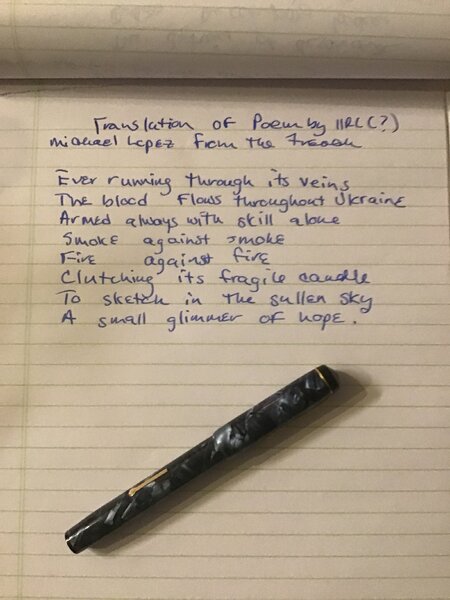 Translation of Poem by IIRL(?)
Michael Lopez from the French
Ever running through its veins
The blood flows throughout Ukraine
Armed always with skill alone
Smoke against smoke
Fire against fire
Clutching its fragile candle
To sketch in the sullen sky
A small glimmer of hope.